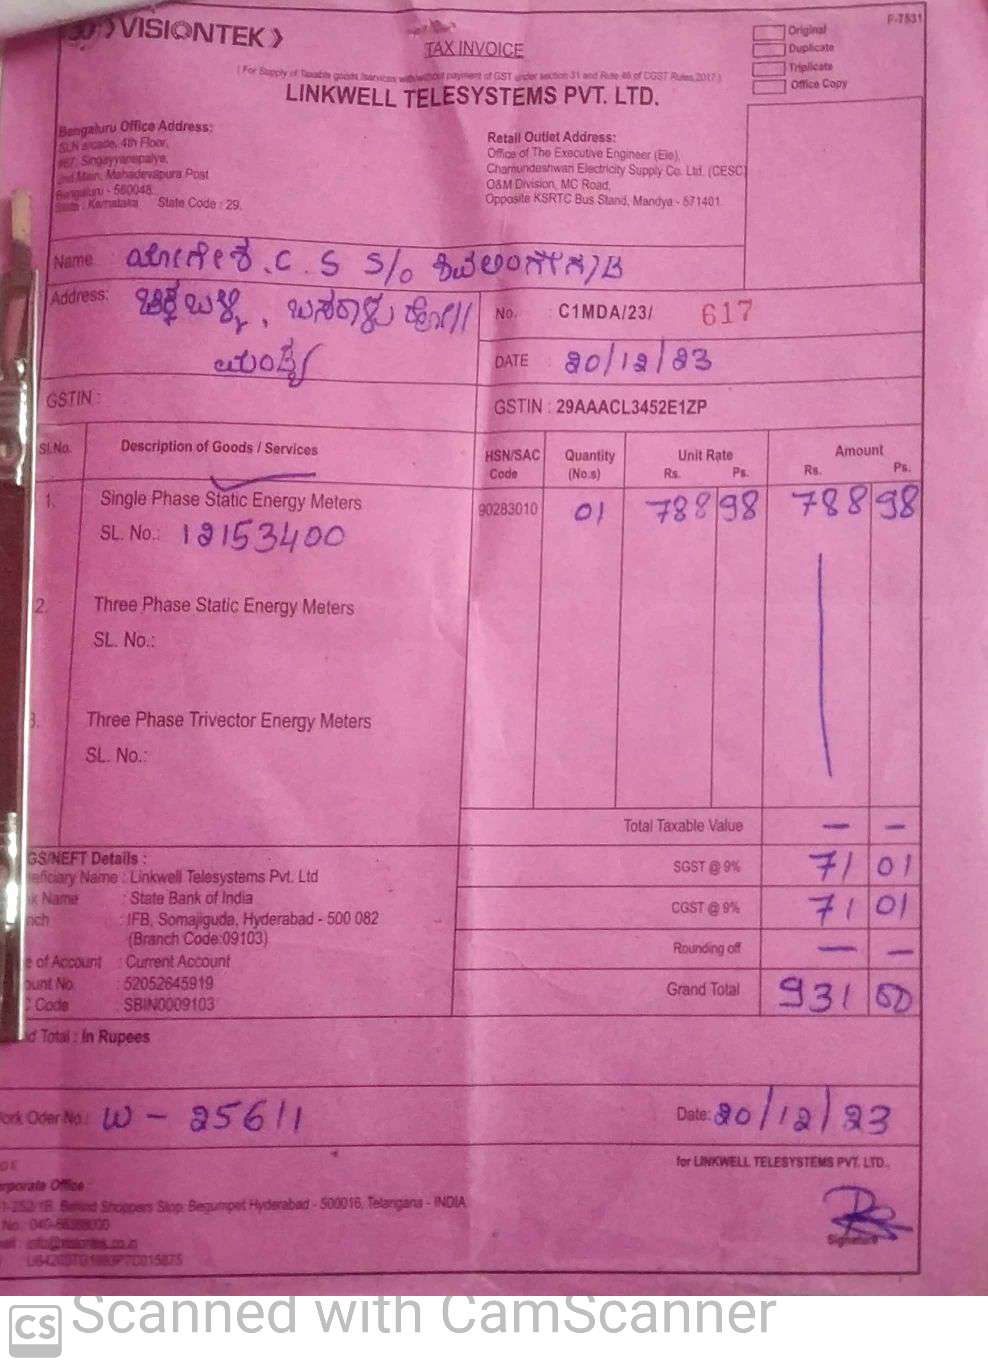 VISIONTEK
F-7531
TAX INVOICE
Original
Duplicate
Triplicate
Office Copy
( For Supply of Taxable goods /services with/without payment of GST under section 31 and Rule 46 of CGST Rules,2017 )
LINKWELL TELESYSTEMS PVT. LTD.
Bengaluru Office Address:
SLN arcade, 4th Floor,
Singayyanapalya,
Main, Mahadevapura Post
Bengaluru - 560048.
State : Karnataka State Code : 29.
Retail Outlet Address:
Office of The Executive Engineer (Ele),
Chamundeshwari Electricity Supply Co. Ltd. (CESC)
O&M Division, MC Road,
Opposite KSRTC Bus Stand, Mandya - 571401.
Name C . S S/o
Address:
ಮಂಡ್ಯ
No. : C1MDA/23/ 617
DATE : 20/12/23
GSTIN :
GSTIN : 29AAACL3452E1ZP
Sl.No. Description of Goods / Services HSN/SAC Code Quantity (No.s) Unit Rate Rs. Ps. Amount Rs. Ps.
1. Single Phase Static Energy Meters 90283010 01 788 98 788 98
SL. No.: 12153400
2. Three Phase Static Energy Meters
SL. No.:
3. Three Phase Trivector Energy Meters
SL. No.:
Total Taxable Value — —
GS/NEFT Details :
SGST @ 9% 71 01
eficiary Name : Linkwell Telesystems Pvt. Ltd
k Name : State Bank of India
CGST @ 9% 71 01
nch : IFB, Somajiguda, Hyderabad - 500 082
(Branch Code:09103)
Rounding off — —
e of Account : Current Account
ount No : 52052645919
Grand Total 931 00
C Code : SBIN0009103
d Total : In Rupees
Work Oder No.: W - 256/1
Date: 20/12/23
for LINKWELL TELESYSTEMS PVT. LTD.
rporate Office :
Behind Shoppers Stop, Begumpet Hyderabad - 500016, Telangana - INDIA
Signature
CS Scanned with CamScanner